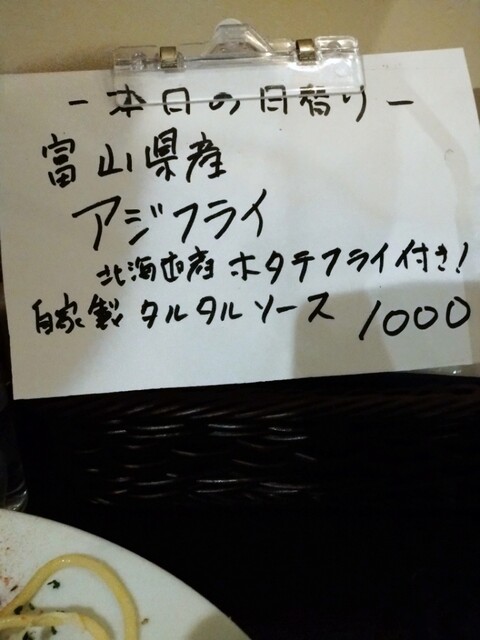 -本日の日替り-
富山県産
アジフライ
北海道産 ホタテフライ付き!
自家製 タルタルソース 1000